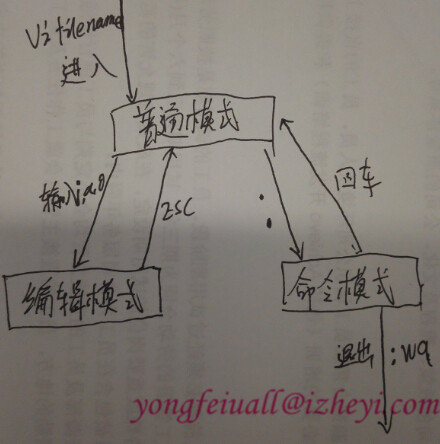 Vi filename
进入
普通模式
输入i,a,o
ESC
:
回车
编辑模式
命令模式
退出 :wq
yongfeiuall@izheyi.com